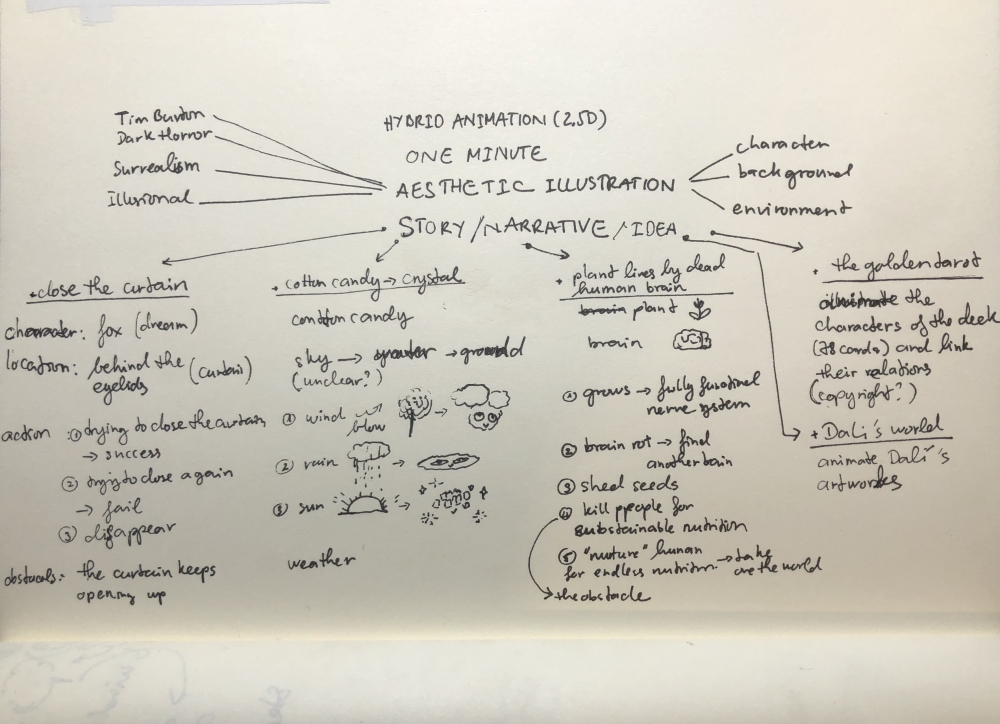 HYBRID ANIMATION (2.5D)
ONE MINUTE
AESTHETIC ILLUSTRATION
STORY/NARRATIVE/IDEA
Tim Burton
Dark Horror
Surrealism
Illusional
character
background
environment
+ close the curtain
character: fox (dream)
location: behind the (curtain)
eyelids
action : ① trying to close the curtain
→ success
② trying to close again
→ fail
③ disappear
obstacals: the curtain keeps
opening up
+ cotton candy → crystal
candy
sky → → ground
(unclear?)
① wind blow
② rain →
③ sun →
weather
+ plant lives by dead
human brain
brain plant
brain
① grows → fully
nerve system
② brain rot → find
another bain
③ shed seeds
④ kill people for
substainable nutrition
⑤ "nurture" human
for endless nutrition → take
the world
→ the obstacle
+ the golden tarot
illustrate the
characters of the deck
(78 cards) and link
their relations
(copyright?)
+ Dali's world
animate Dalí's
artworks